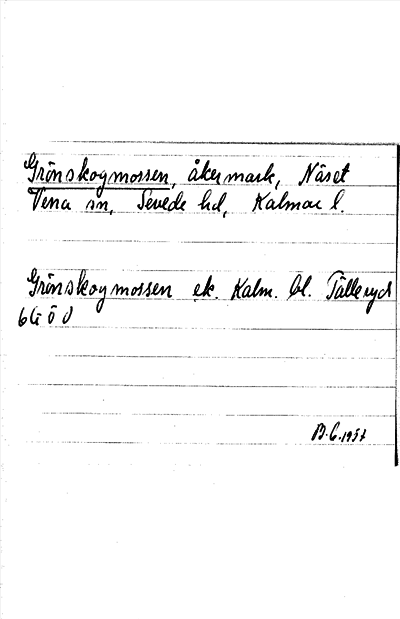 Grönskogmossen, åkermark, Näset
Vena sn, Sevede hd, Kalmar l.
Grönskogmossen ek. Kalm. bl. Tålleryd
6G ö d
B.G. 1937